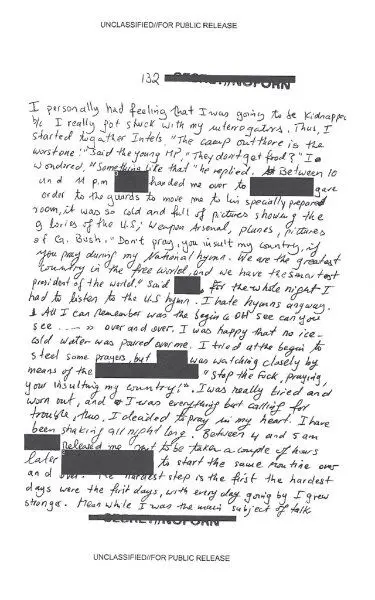 UNCLASSIFIED//FOR PUBLIC RELEASE
132 SECRET//NOFORN
I personally had feeling that I was going to be kidnapped
b/c I really got stuck with my interrogators. Thus, I
started to gather Intels. "The camp out there is the
worst one!" Said the young MP. "They don't get food?" I
wondered, "Something like that" he replied. Between 10
and 11 p.m handed me over to gave
order to the guards to move me to his specially prepared
room, it was so cold and full of pictures showing the
glories of the U.S; Weapon Arsenal, planes, pictures
of G. Bush. "Don't pray, you insult my country, if
you pray during my National hymn. We are the greatest
Country in the free world, and we have the smartest
president of the world." Said for the whole night I
had to listen to the U.S hymn. I hate hymns anyway.
All I can remember was the begin "Oh! see can you
see ..... » over and over. I was happy that no ice-
cold water was poured over me. I tried at the begin to
steel some prayers, but was watching closely by
means of the "stop the Fuck, praying,
you insulting my country!". I was really tired and
worn out, and I was everything but calling for
trouble, thus. I decided to pray in my heart. I have
been shaking all night long. Between 4 and 5 am
released me to be taken a couple of hours
later to start the same routine over
and over. The hardest step is the first the hardest
days were the first days, with every day going by I grew
stronger. Mean while I was the main subject of talk
SECRET//NOFORN
UNCLASSIFIED//FOR PUBLIC RELEASE